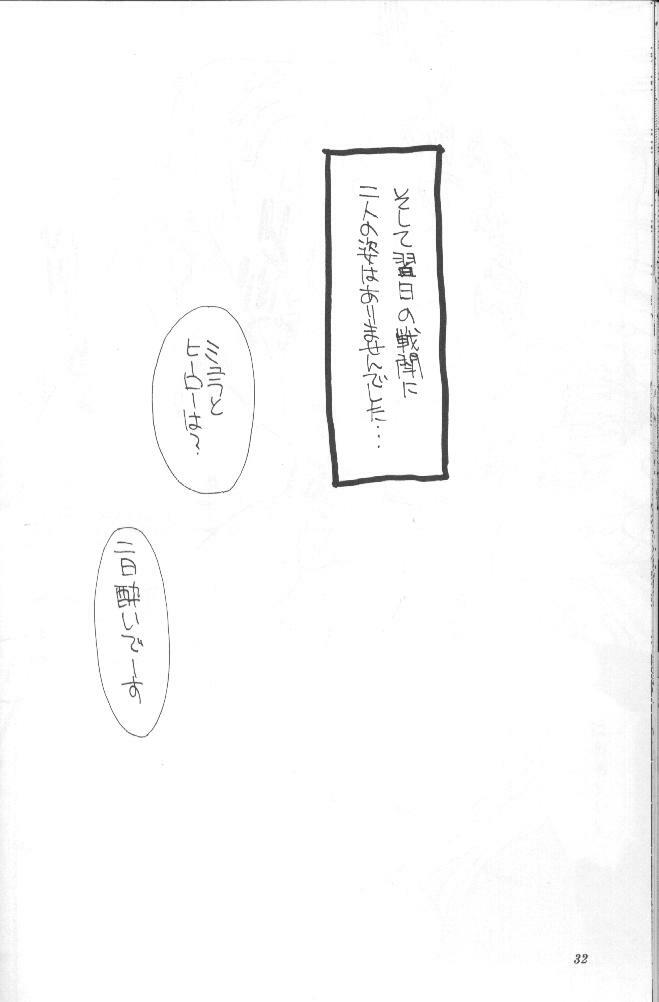 そして翌日の戦闘に
二人の姿はありませんでした…
ミュラと
ヒーローは?
二日酔いでーす
32